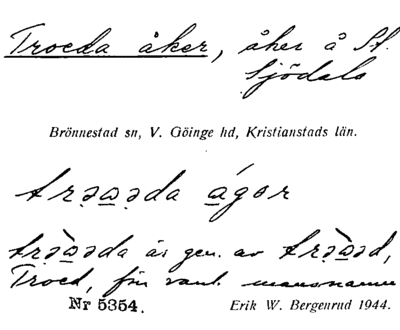 Troeda åker, åker å St.
Sjödala
Brönnestad sn, V. Göinge hd, Kristianstads län.
trəa̲ə̯da á̲gər
trə̀a̲ə̯da är gen. av trə̀a̲ə̯d,
Troed, förr vanl. mansnamn
Nr 5354. Erik W. Bergenrud 1944.